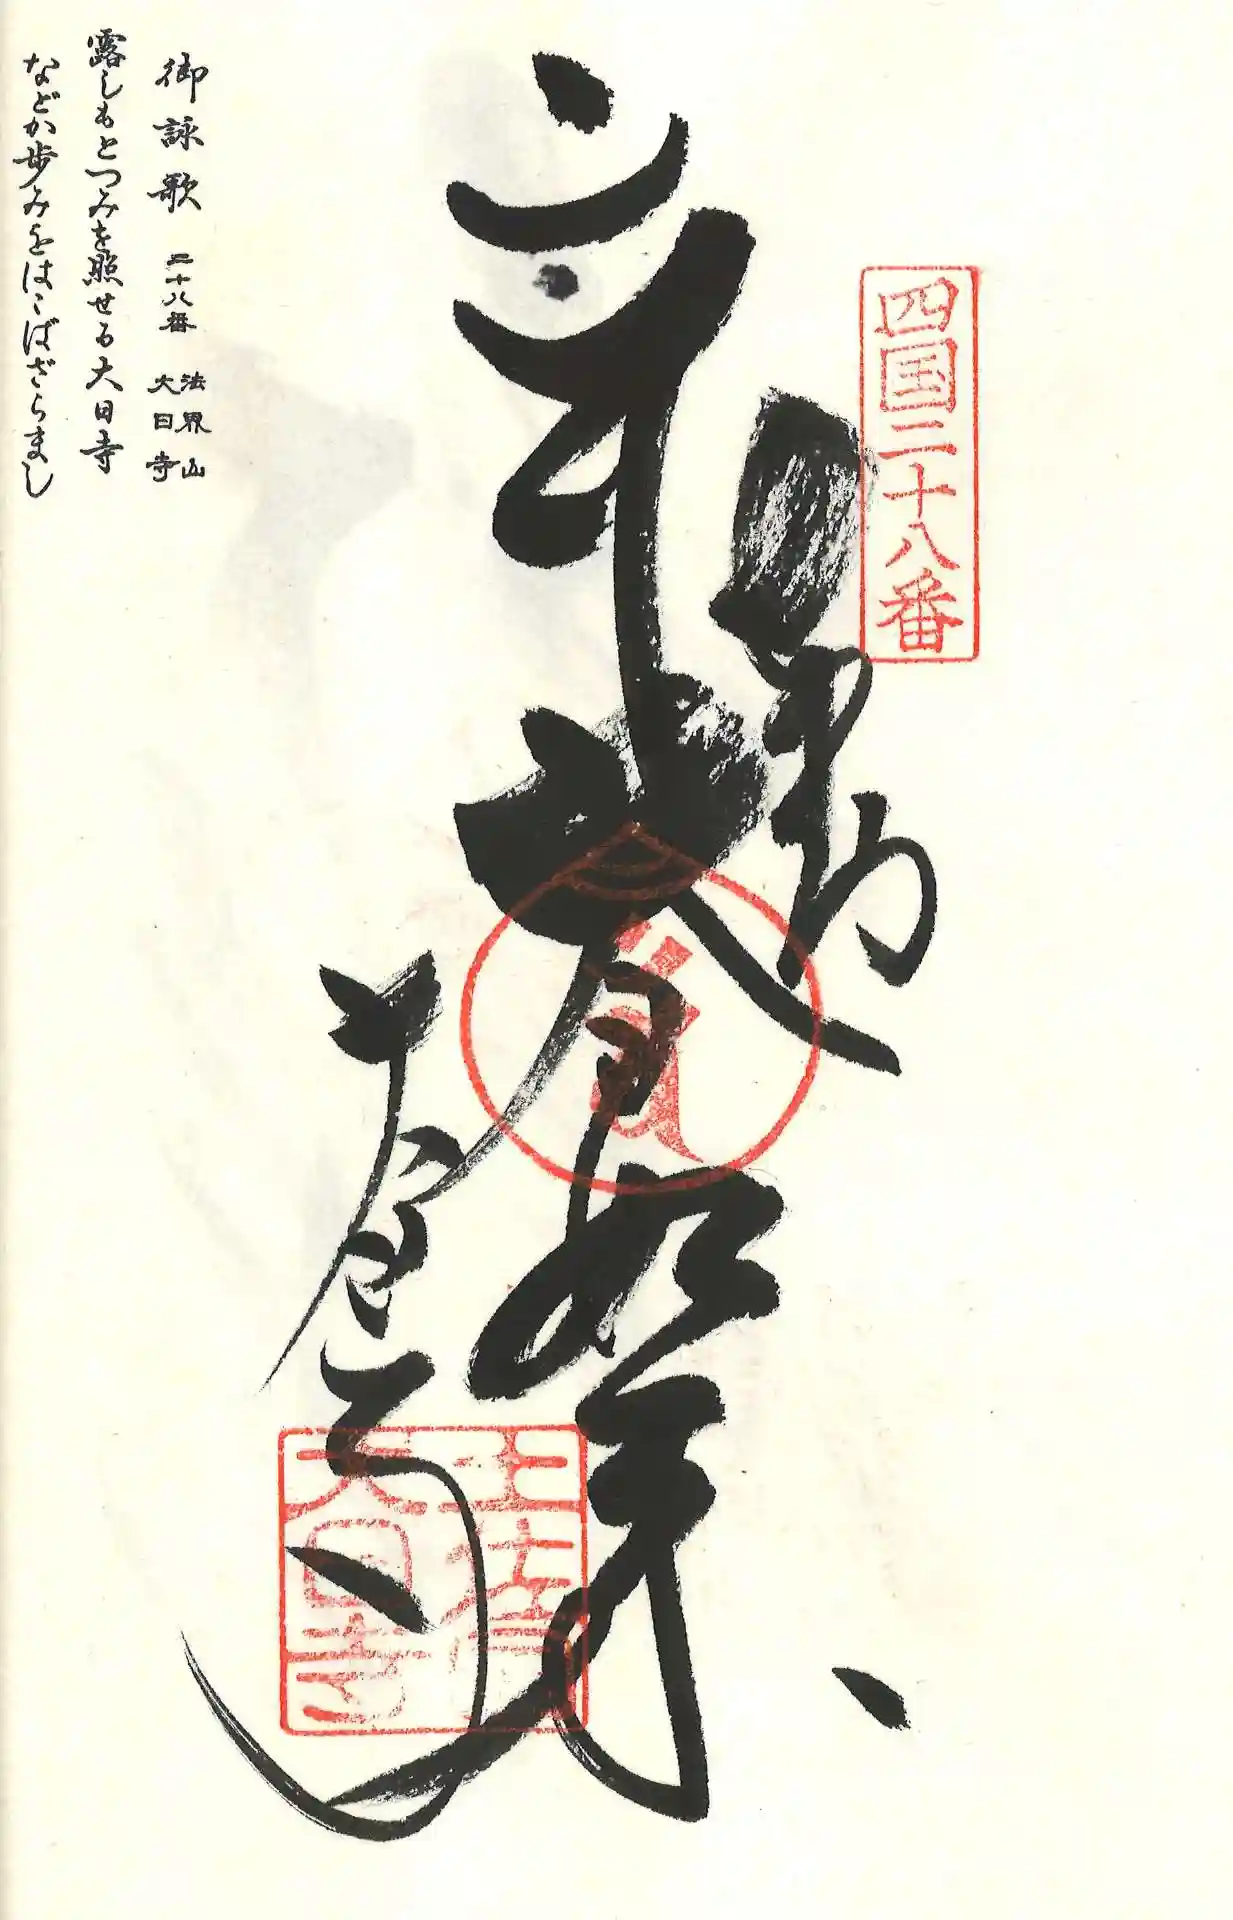 四国二十八番
奉納
大日如来
大日寺
土佐
大日寺
御詠歌 二十八番 法界山 大日寺
露しもとつみを照せる大日寺
などか歩みをはこばざらまし